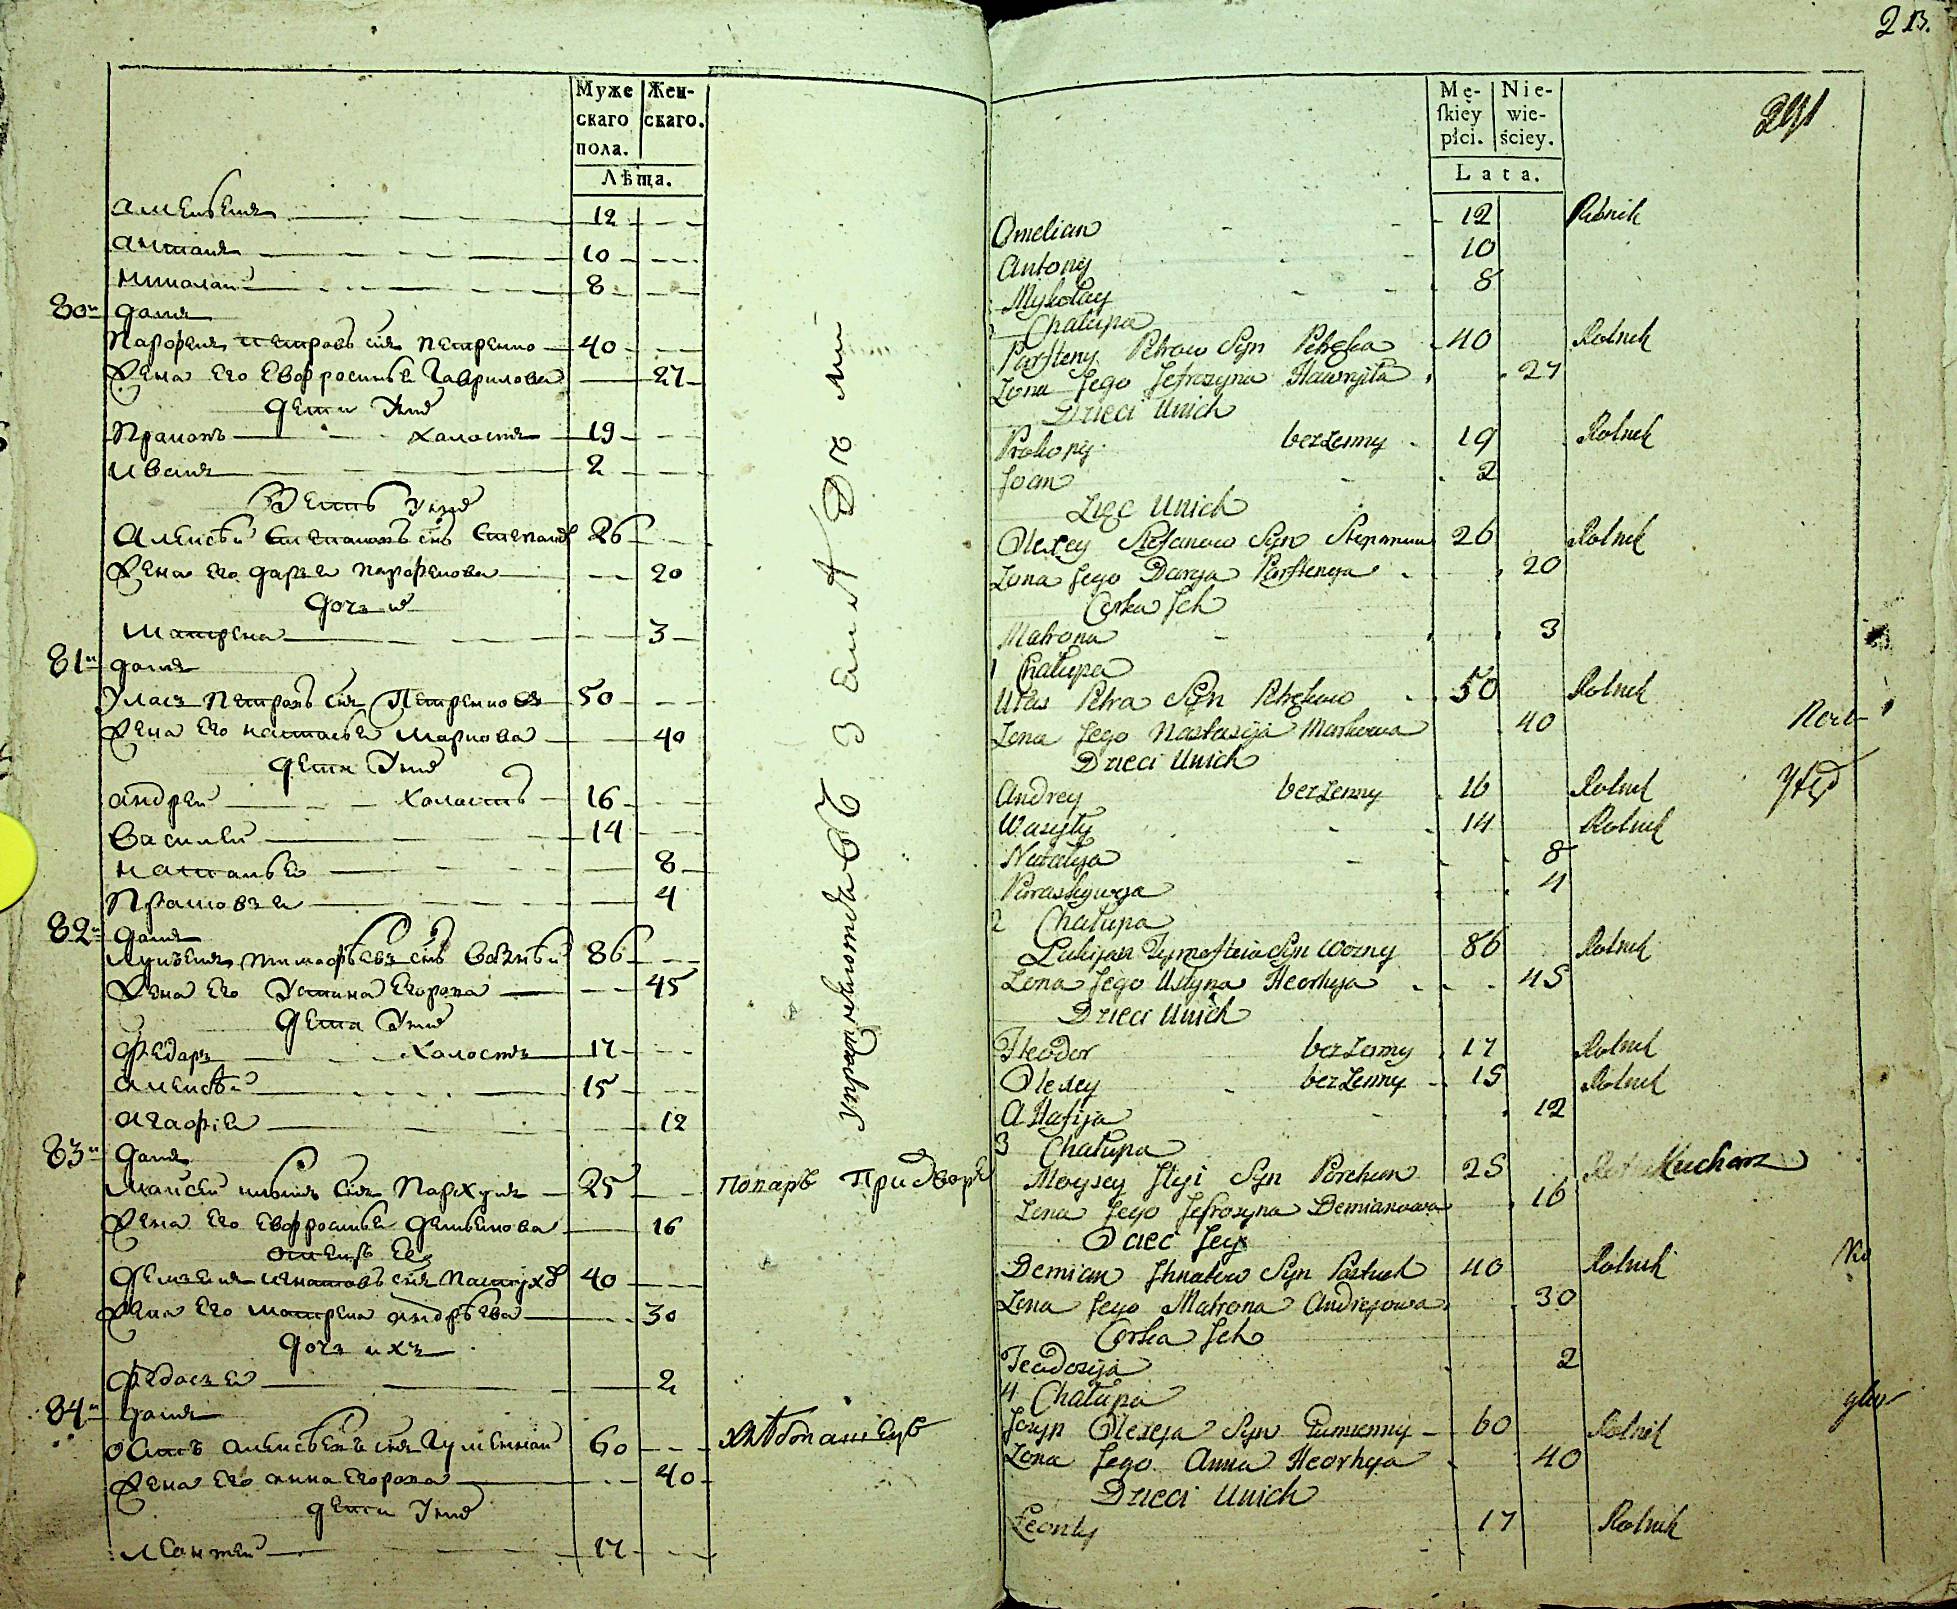 Муже Жен-
скаго скаго.
пола.
Лѣта.
Амельянъ 12
Антонъ 10
Николай 8
80й домъ
Парфенъ Петровъ сынъ Петренко 40
Жена его Евфросинья Гаврилова 27
дети у них
Прокопъ холостъ 19
Иванъ 2
Зеть у них
Алексѣй Степановъ сынъ 26
Жена его Дарья Парфенова 20
дочь их
Матрена 3
81й домъ
Уласъ Петровъ сынъ Петренковъ 50
Жена его Наталья Маркова 40
дети у них
Андрей холостъ 16
Василей 14
Наталья 8
Прасковья 4
82й домъ
Лукьянъ Тимофѣевъ сынъ 86
Жена его Устина Егорова 45
дети у них
Федоръ холостъ 17
Алексѣй 15
Агафія 12
83й домъ
Мойсей сынъ Пархунъ 25
Жена его Евфросинья Демьянова 16
отецъ ее
Демьянъ Игнатовъ сынъ Пастухъ 40
Жена его Матрена Андрѣева 30
дочь ихъ
Федосья 2
84й домъ
Осипъ Алексѣевъ сынъ Гуменной 60
Жена его Анна Егорова 40
дети у них
Леонтей 17
упражняются въ
поваръ при дворѣ
хлѣбопашецъ
213.
291
Mę- Nie-
ſkiéy wie-
płci. ściey.
Lata.
Omelian 12 Rolnik
Antony 10
Mykołay 8
Chałupa
Parfteny Petrow Syn Petręka 40 Rolnik
Zona Jego Jefrozyna Hawryła 27
Dzieci Unich
Prokopy bezżenny 19 Rolnik
Joan 2
Zięc Unich
Olexey Stefanow Syn 26 Rolnik
Zona Jego Darya Parftenya 20
Corka Jch
Matrona 3
1 Chałupa
Ułas Petra Syn Petrękow 50 Rolnik
Zona Jego Nastasija Markowa 40
Dzieci Unich
Andrey bezżenny 16 Rolnik
Wasyly 14 Rolnik
Natalija 8
Paraskywya 4
2 Chałupa
Lukijan Tymofteia Syn Wozny 86 Rolnik
Zona Jego Ustyna Heorhya 45
Dzieci Unich
Fteodor bezżenny 17 Rolnik
Olexey bezżenny 15 Rolnik
Ahafija 12
3 Chałupa
Moysey Jlyi Syn Porchun 25 Kucharz
Zona Jego Jefrosyna Demianowa 16
Ociec Jey
Demian Jhnatow Syn Pastuch 40 Rolnik
Zona Jego Matrona Andrejowa 30
Corka Jch
Teodozija 2
4 Chałupa
Jozyp Olexeja Syn Gumienny 60 Rolnik
Zona Jego Anna Heorhya 40
Dzieci Unich
Leonty 17 Rolnik